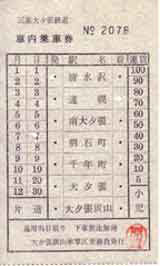 三菱大夕張鉄道
車内乗車券 № 2078
月 日 発 駅名 着 運賃
1 1 清水沢 100
2 2 90
3 3 遠幌 80
4 4 70
5 5 南大夕張 60
6 6 50
7 7 明石町 40
8 8 30
9 9 千年町 20
10 10 10
11 20 大夕張 5
12 30 小児
片道 大夕張炭山
通用当日限り 下車前途無効
大夕張炭山車掌区乗務員発行